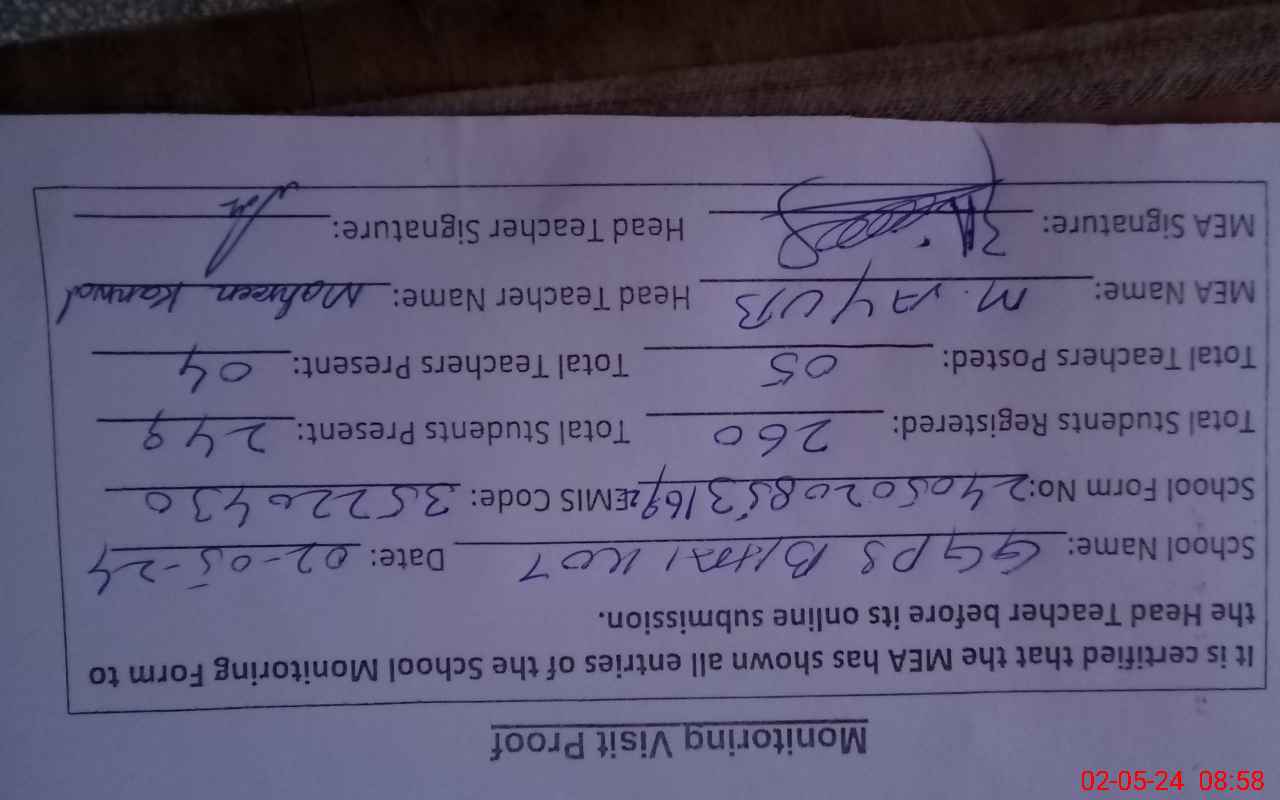 Monitoring Visit Proof
It is certified that the MEA has shown all entries of the School Monitoring Form to
the Head Teacher before its online submission.
School Name: GGPS BHAI KOT Date: 02-05-24
School Form No: 2405020853169 EMIS Code: 35220430
Total Students Registered: 260 Total Students Present: 249
Total Teachers Posted: 05 Total Teachers Present: 04
MEA Name: M. AYUB Head Teacher Name: Mahreen Kanwal
MEA Signature: Head Teacher Signature:
02-05-24 08:58